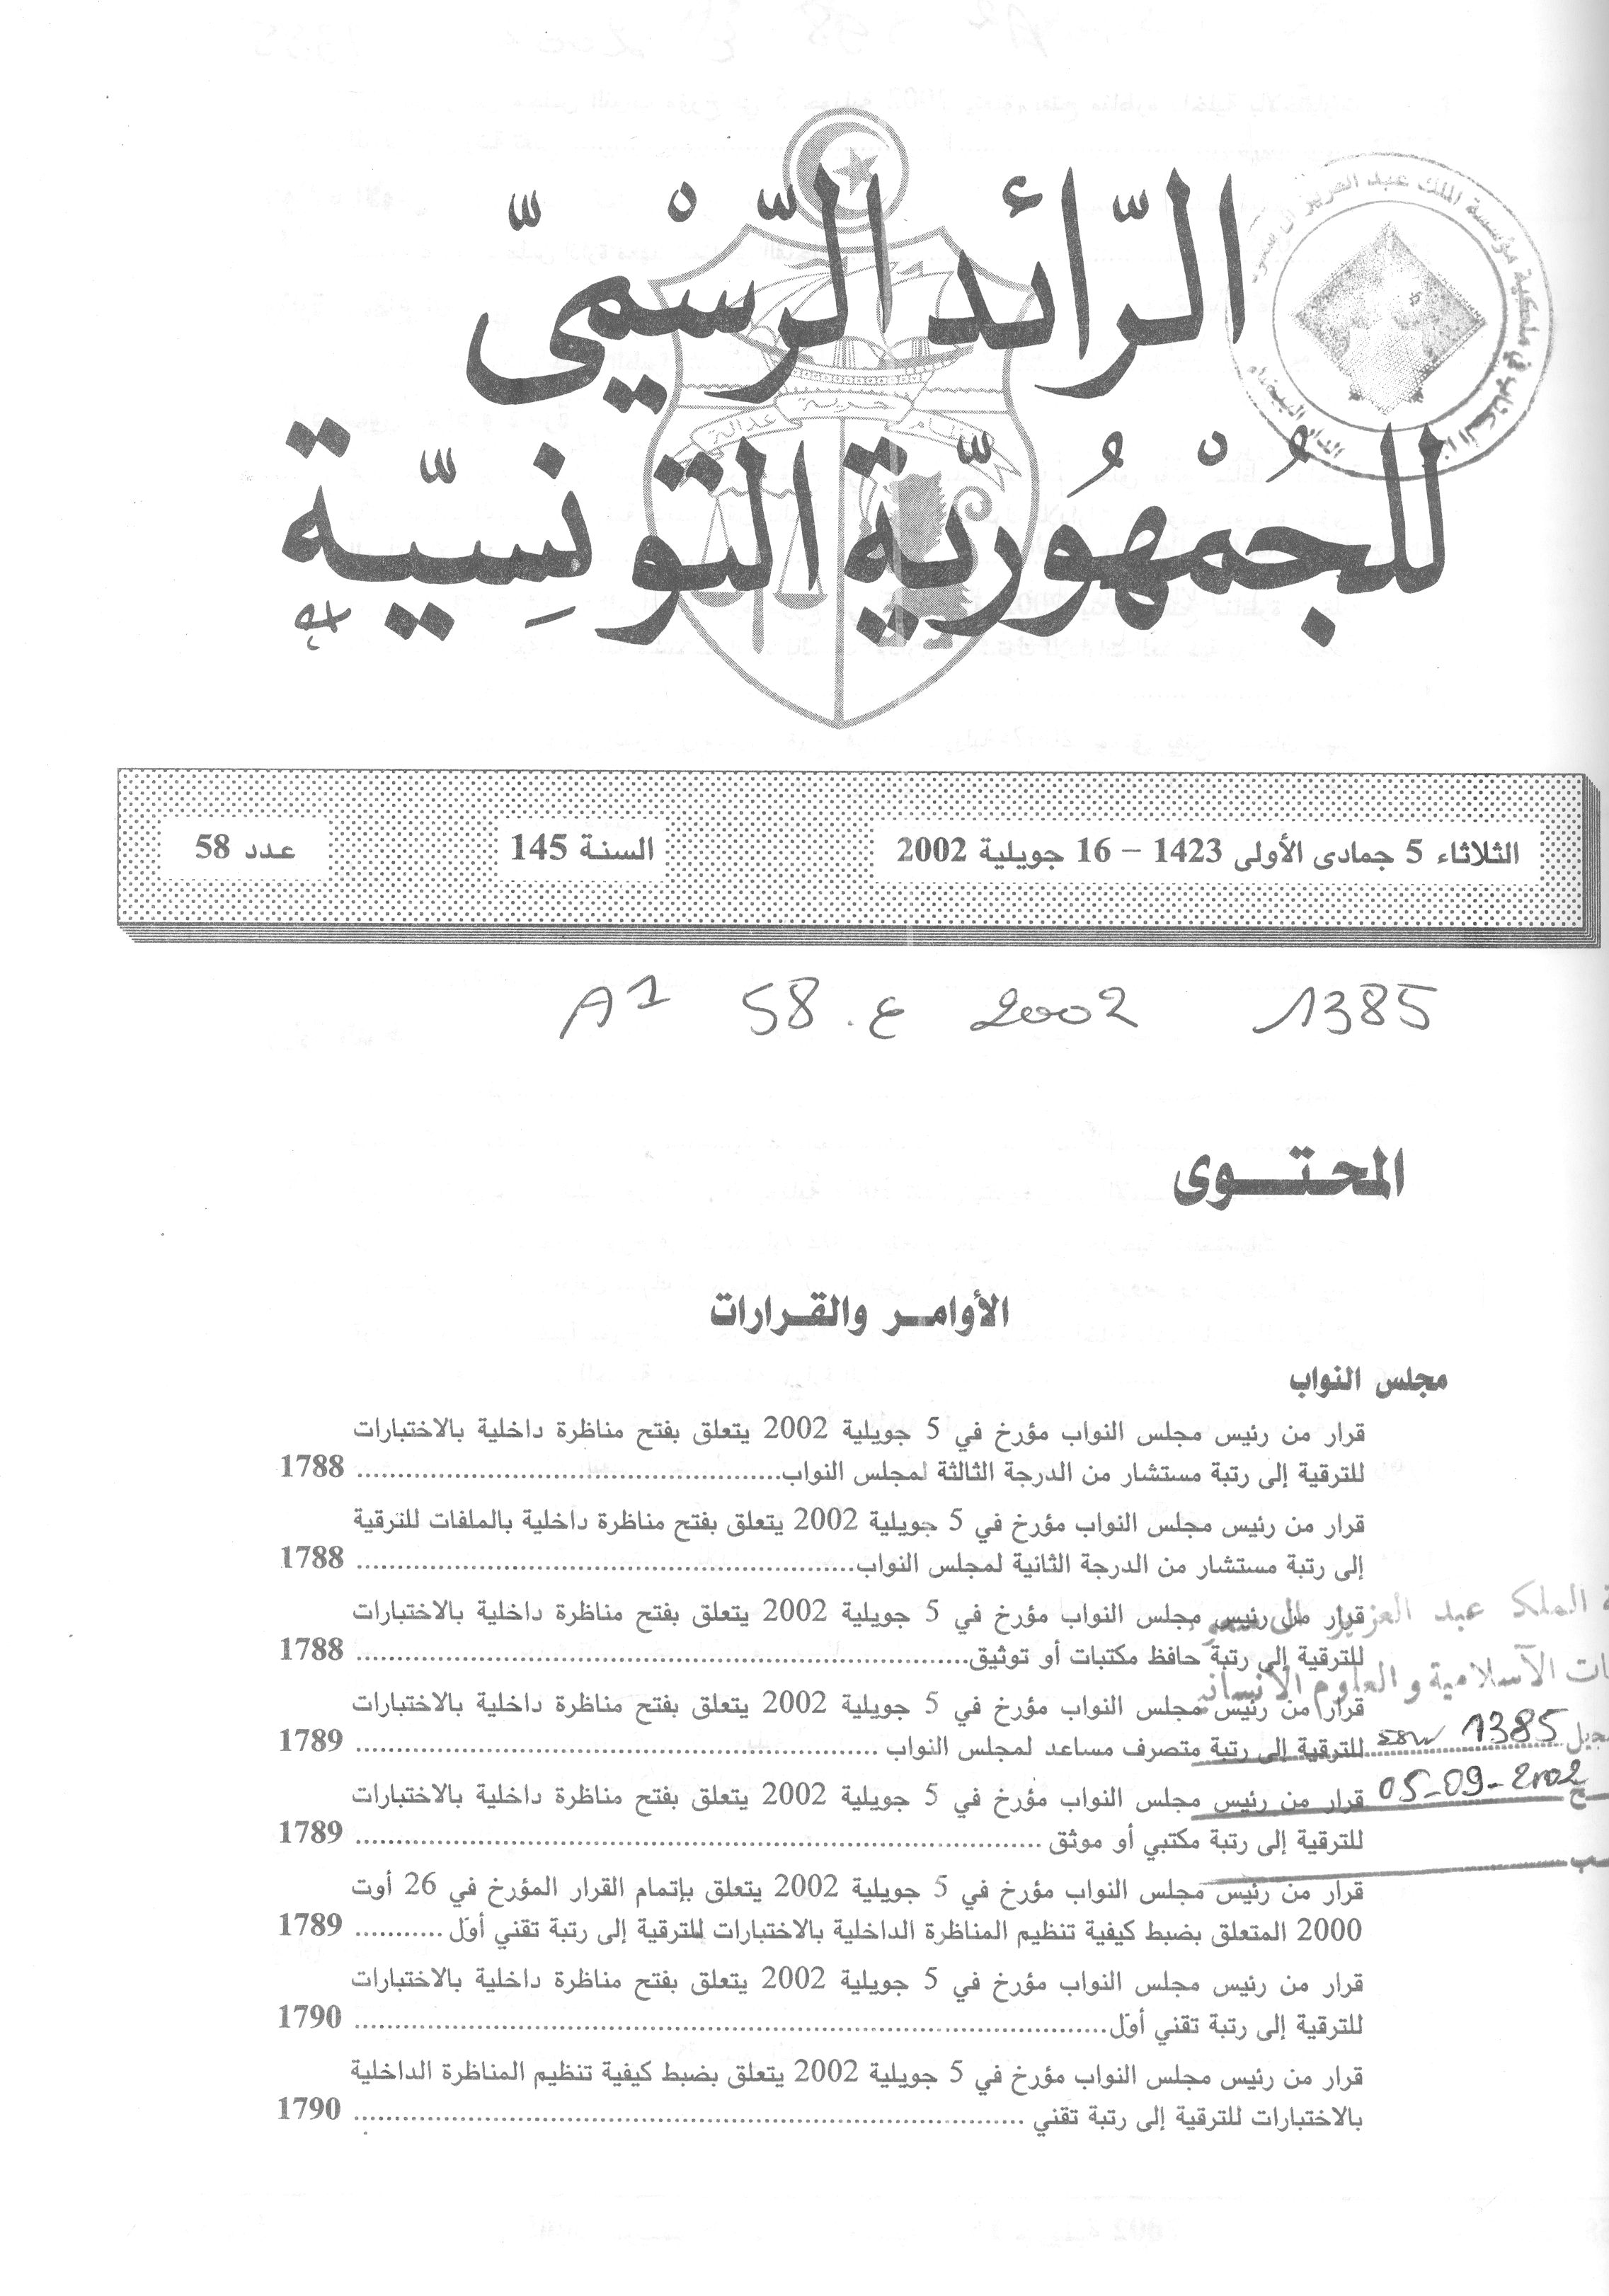 الرّائد الرّسْمِيّ
للجُمْهُوريّة التّونِسيّة
نظام حرية عدالة
مؤسسة الملك عبد العزيز آل سعود
الدار البيضاء
الثلاثاء 5 جمادى الأولى 1423 – 16 جويلية 2002 السنة 145 عدد 58
A1 58 .ع 2002 1385
المحتوى
الأوامر والقرارات
مجلس النواب
قرار من رئيس مجلس النواب مؤرخ في 5 جويلية 2002 يتعلق بفتح مناظرة داخلية بالاختبارات
للترقية إلى رتبة مستشار من الدرجة الثالثة لمجلس النواب........................................ 1788
قرار من رئيس مجلس النواب مؤرخ في 5 جويلية 2002 يتعلق بفتح مناظرة داخلية بالملفات للترقية
إلى رتبة مستشار من الدرجة الثانية لمجلس النواب........................................ 1788
قرار من رئيس مجلس النواب مؤرخ في 5 جويلية 2002 يتعلق بفتح مناظرة داخلية بالاختبارات
للترقية إلى رتبة حافظ مكتبات أو توثيق........................................ 1788
قرار من رئيس مجلس النواب مؤرخ في 5 جويلية 2002 يتعلق بفتح مناظرة داخلية بالاختبارات
للترقية إلى رتبة متصرف مساعد لمجلس النواب ........................................ 1789
قرار من رئيس مجلس النواب مؤرخ في 5 جويلية 2002 يتعلق بفتح مناظرة داخلية بالاختبارات
للترقية إلى رتبة مكتبي أو موثق ........................................ 1789
قرار من رئيس مجلس النواب مؤرخ في 5 جويلية 2002 يتعلق بإتمام القرار المؤرخ في 26 أوت
2000 المتعلق بضبط كيفية تنظيم المناظرة الداخلية بالاختبارات للترقية إلى رتبة تقني أوّل ........... 1789
قرار من رئيس مجلس النواب مؤرخ في 5 جويلية 2002 يتعلق بفتح مناظرة داخلية بالاختبارات
للترقية إلى رتبة تقني أوّل........................................ 1790
قرار من رئيس مجلس النواب مؤرخ في 5 جويلية 2002 يتعلق بضبط كيفية تنظيم المناظرة الداخلية
بالاختبارات للترقية إلى رتبة تقني ........................................ 1790
الملك عبد العزيز آل سعود
الآسلامية والعلوم الآنسانية
1385
05-09-2002